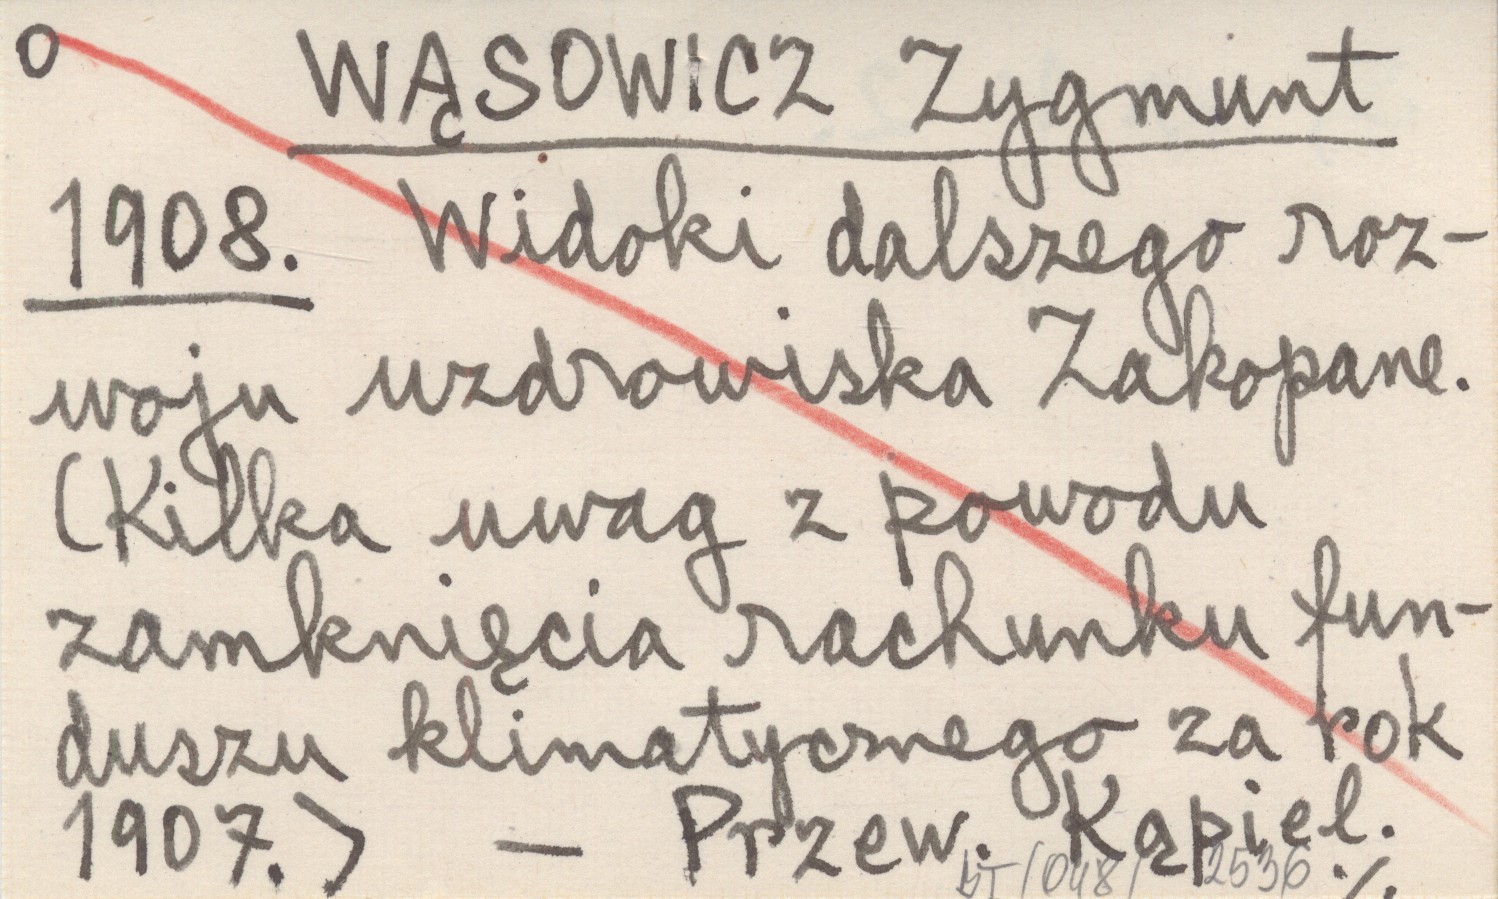 O WĄSOWICZ Zygmunt
1908. Widoki dalszego roz-
woju uzdrowiska Zakopane.
(Kilka uwag z powodu
zamknięcia rachunku fun-
duszu klimatycznego za rok
1907.) — Przew. Kąpiel.
bT/048/ 2536 ./.